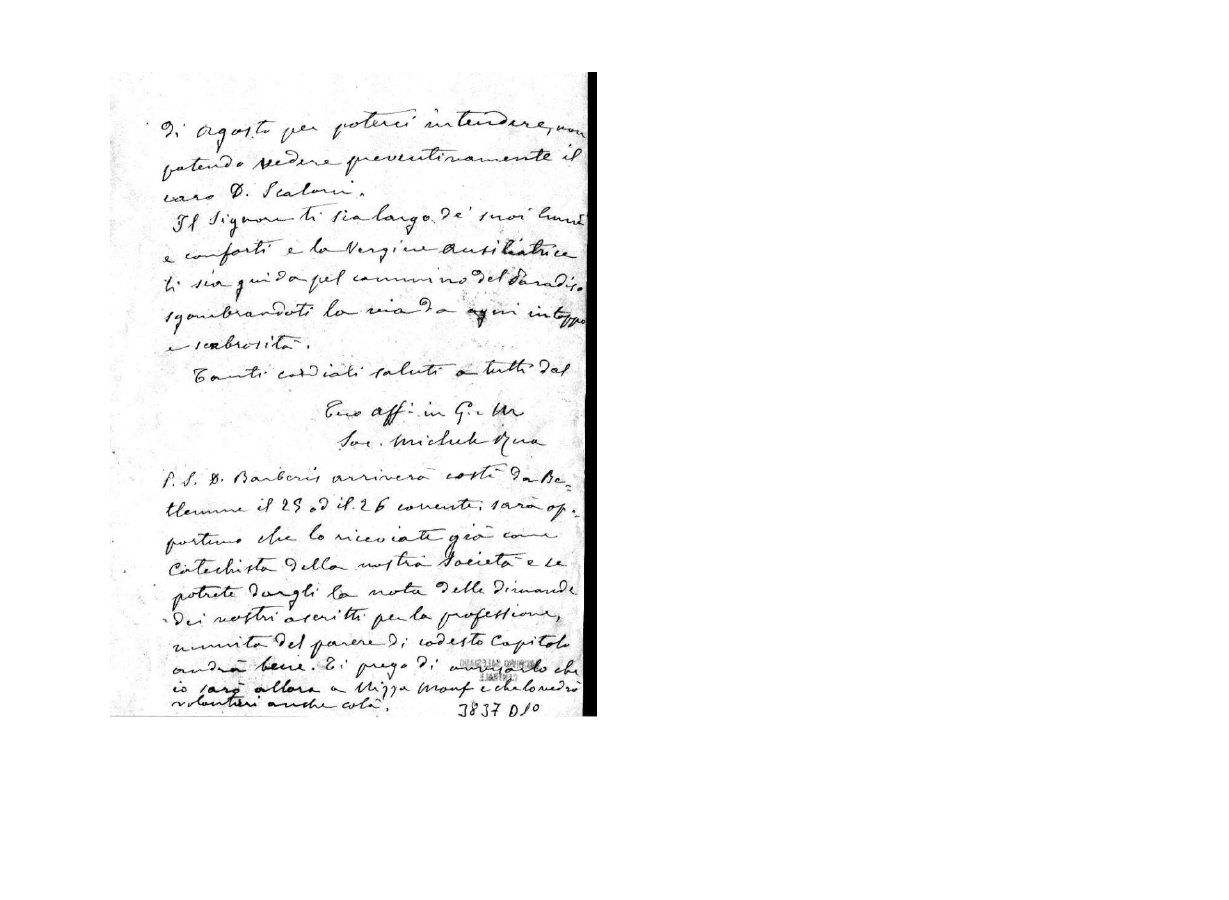 di Agosto per poterci intendere, non
potendo vedere preventivamente il
caro D. Scaloni.
Il Signore ti sia largo de' suoi lumi
e conforti e la Vergine Ausiliatrice
ti sia guida pel cammino del Paradiso
sgombrandoti la via da ogni intoppo
e scabrosità.
Tanti cordiali saluti a tutti dal
Tuo aff. in G. e M
Sac. Michele Rua
P. S. D. Barberis arriverà costì da Be-
tlemme il 25 od il 26 corrente; sarà op-
portuno che lo riceviate già come
Catechista della nostra Società e se
potrete dargli la nota delle dimande
dei vostri ascritti per la professione,
munita del parere di codesto Capitolo
andrà bene. Ti prego di avvisarlo che
io sarò allora a Nizza Monf e che lo vedrò
volentieri anche colà.
3837 D10